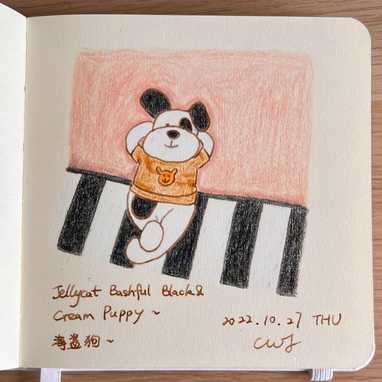 Jellycat Bashful Black&
Cream Puppy ~
2022.10.27 THU
海盗狗~